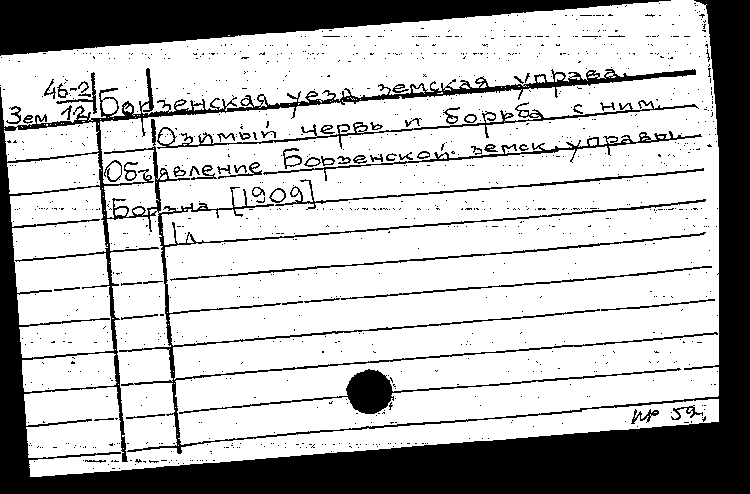 Зем 46-2/12
Борзенская уезд. земская управа.
Озимый червь и борьба с ним.
Объявление Борзенской земск. управы.
Борзна, [1909].
1 л.
пр 59,